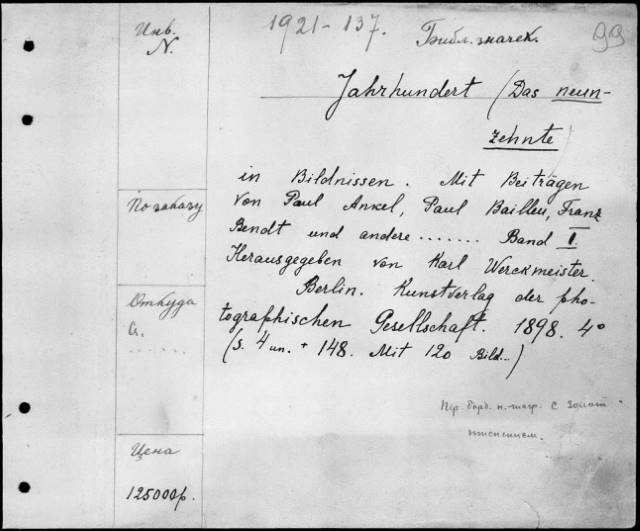 Инв.
N.
1921-137.
Библ. значек.
99
Jahrhundert (Das neun-
zehnte)
in Bildnissen. Mit Beiträgen
von Paul Ankel, Paul Bailleu, Franz
Bendt und andere ....... Band I.
Herausgegeben von Karl Werckmeister.
Berlin. Kunstverlag der pho-
tographischen Gesellschaft. 1898. 4°
(S. 4 un. + 148. Mit 120 Bild..)
По заказу
Откуда
......
Пер. борд. с золот.
тиснением.
Цена
125000р.